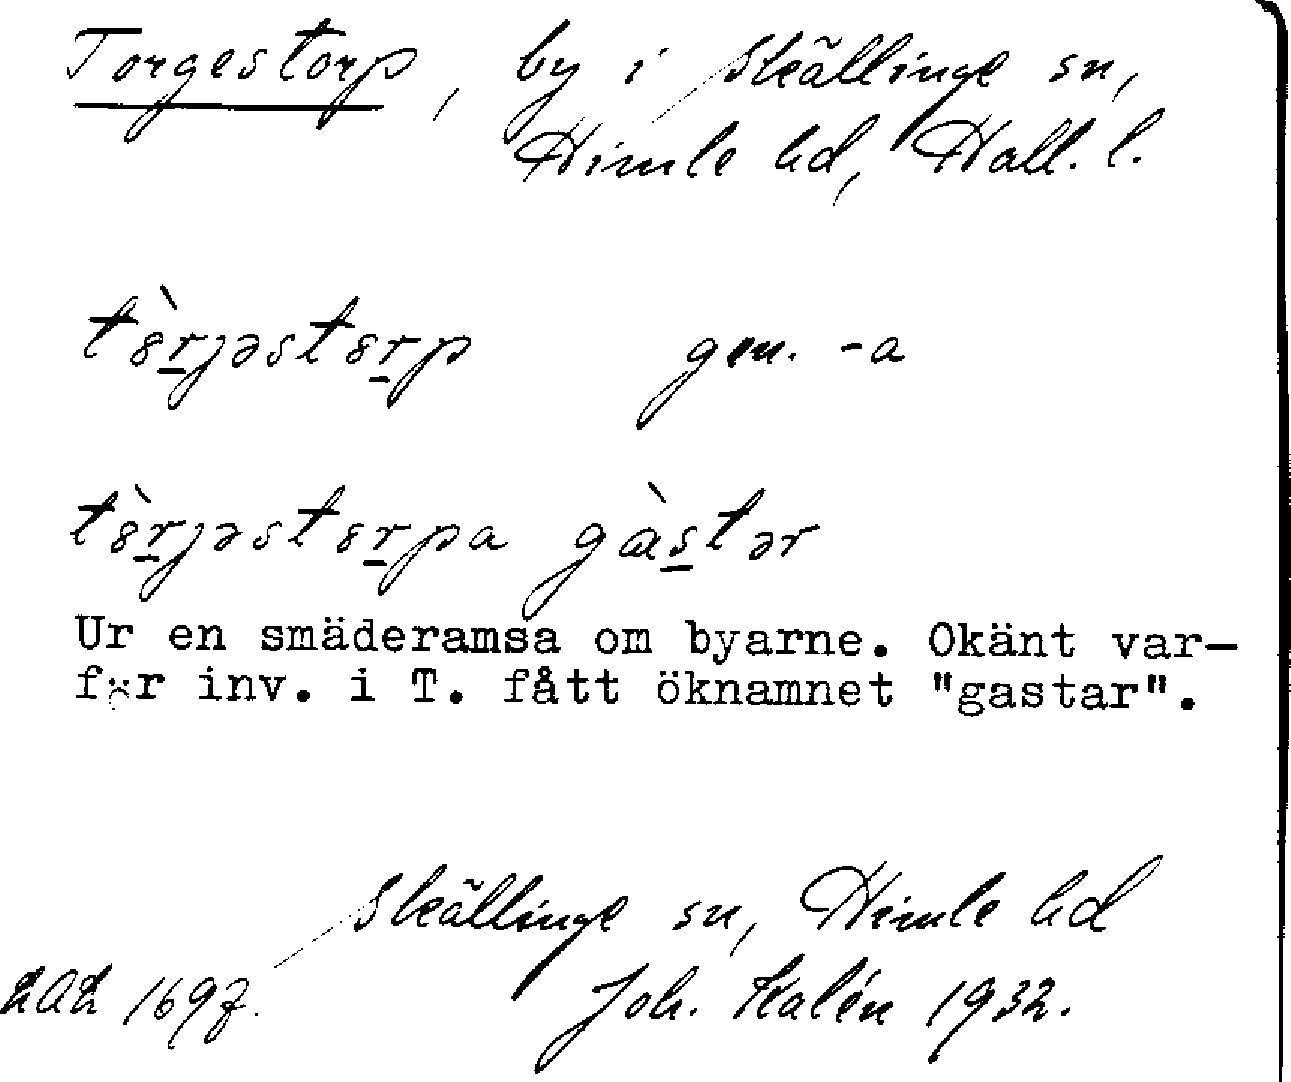 Torgestorp, by i Skällinge sn,
Himle hd, Hall. l.
tȣ̀rjəstȣrp gen. -a
tȣ̀rjəstȣrpa gàstər
Ur en smäderamsa om byarne. Okänt var-
för inv. i T. fått öknamnet "gastar".
Skällinge sn, Himle hd
1697. Joh. Kalén 1932.